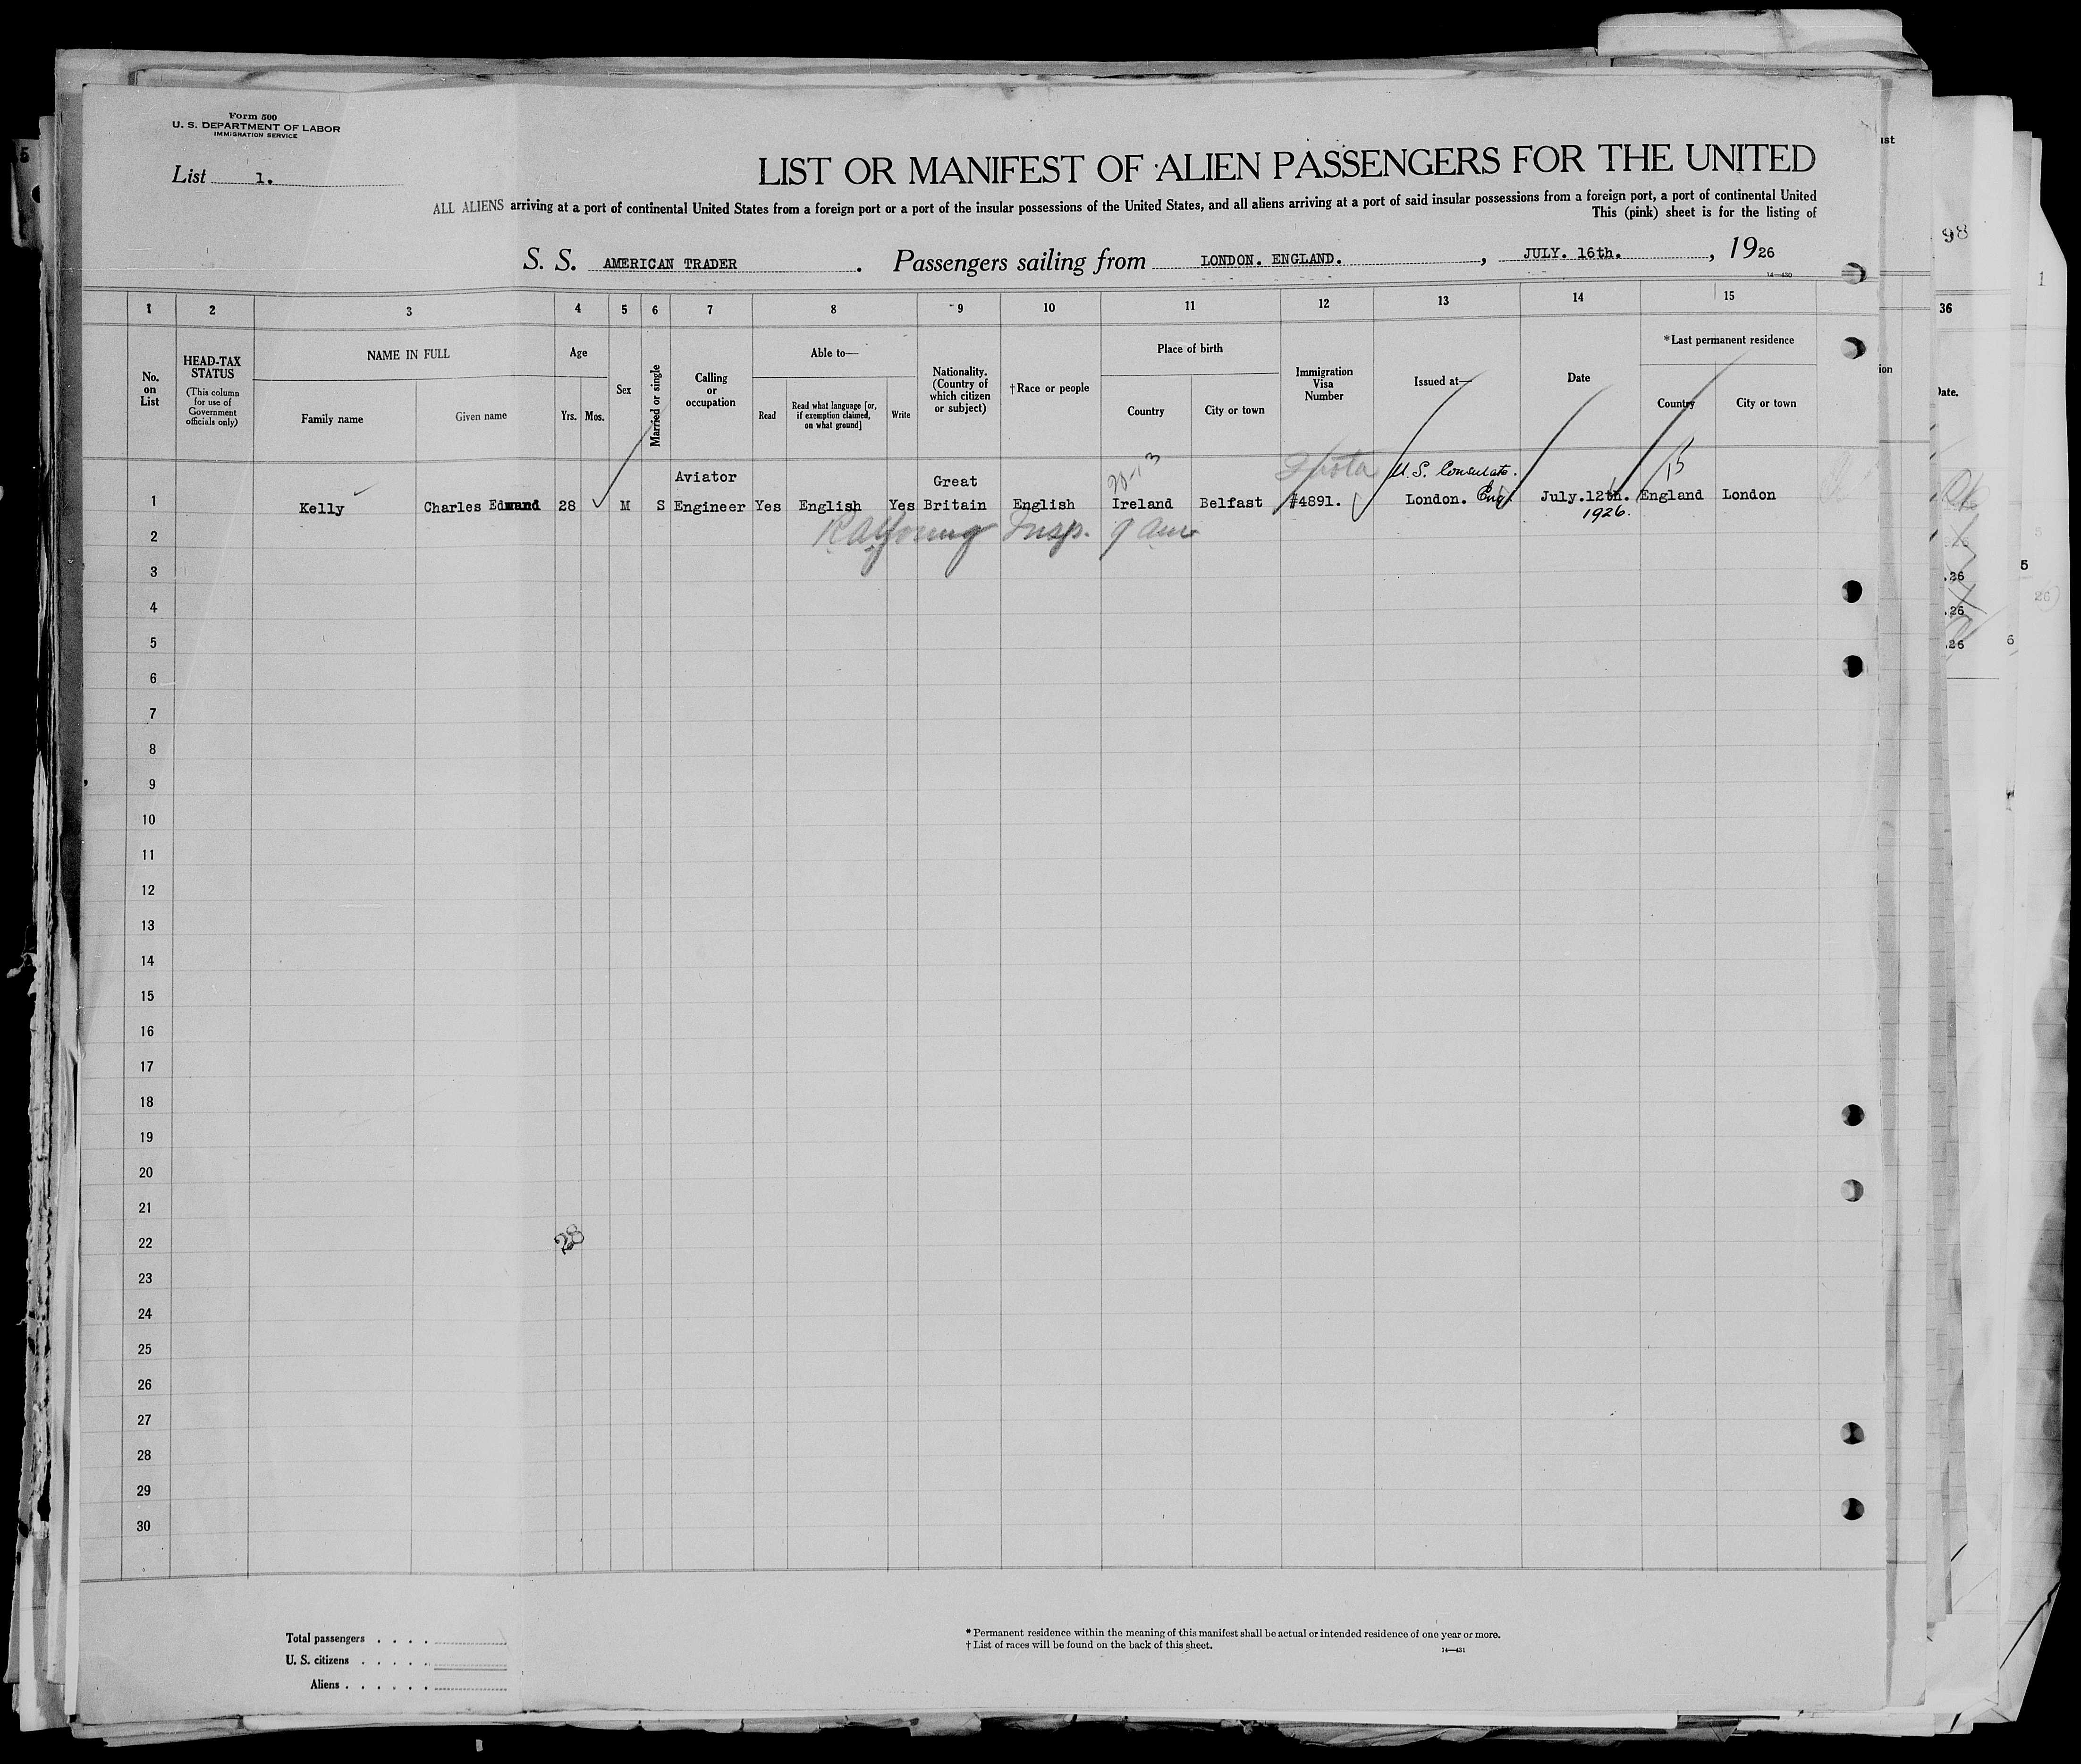 Form 500
U. S. DEPARTMENT OF LABOR
IMMIGRATION SERVICE
List 1.
LIST OR MANIFEST OF ALIEN PASSENGERS FOR THE UNITED
ALL ALIENS arriving at a port of continental United States from a foreign port or a port of the insular possessions of the United States, and all aliens arriving at a port of said insular possessions from a foreign port, a port of continental United
This (pink) sheet is for the listing of
S. S. AMERICAN TRADER . Passengers sailing from LONDON. ENGLAND. , JULY. 16th. , 1926
14—430
1 2 3 4 5 6 7 8 9 10 11 12 13 14 15
No. on List
HEAD-TAX STATUS
(This column for use of Government officials only)
NAME IN FULL
Family name
Given name
Age
Yrs. Mos.
Sex
Married or single
Calling or occupation
Able to—
Read
Read what language [or, if exemption claimed, on what ground]
Write
Nationality. (Country of which citizen or subject)
†Race or people
Place of birth
Country
City or town
Immigration Visa Number
Issued at—
Date
*Last permanent residence
Country
City or town
1 Kelly Charles Edward 28 M S Aviator Engineer Yes English Yes Great Britain English Ireland Belfast #4891. U.S. Consulate. London. Eng. July.12th. 1926. England London
2 Insp. 9 am
3
4
5
6
7
8
9
10
11
12
13
14
15
16
17
18
19
20
21
22
23
24
25
26
27
28
29
30
28
Total passengers
U. S. citizens
Aliens
* Permanent residence within the meaning of this manifest shall be actual or intended residence of one year or more.
† List of races will be found on the back of this sheet.
14—431
98
36
Date.
.26
.26
.26
5
6
1